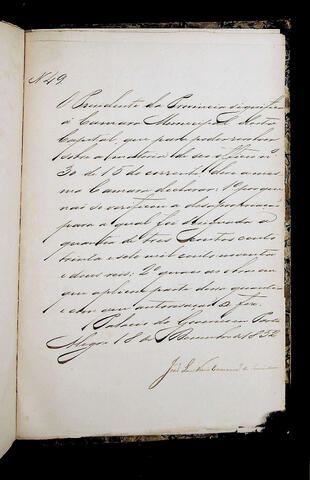 Nº 49
O Presidente da Provincia significa
á Camara Municipal desta
Capital, que para poder resolver
sobre a materia de seo officio nº
30 de 15 do corrente deve a mes-
ma Camara declarar: 1º porque
não se verificou a desapropriação
para a qual foi destinada a
quantia de tres contos cento
trinta e sete mil cento noventa
e dous reis; 2º quaes as obras em
que aplicou parte dessa quantia
e com que autorisação o fez.
Palacio do Governo em Porto
Alegre 18 de 1852